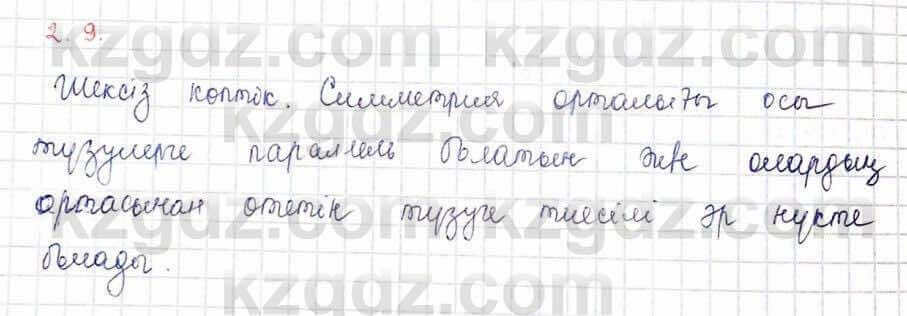 2.9.
Шексіз көптік. Симметрия орталығы осы
түзулерге параллель болатын және олардың
ортасынан өтетін түзуге тиесілі әр нүкте
болады.
kzgdz.com kzgdz.com
kzgdz.com
kzgdz.com kzgdz.com
kzgdz.com